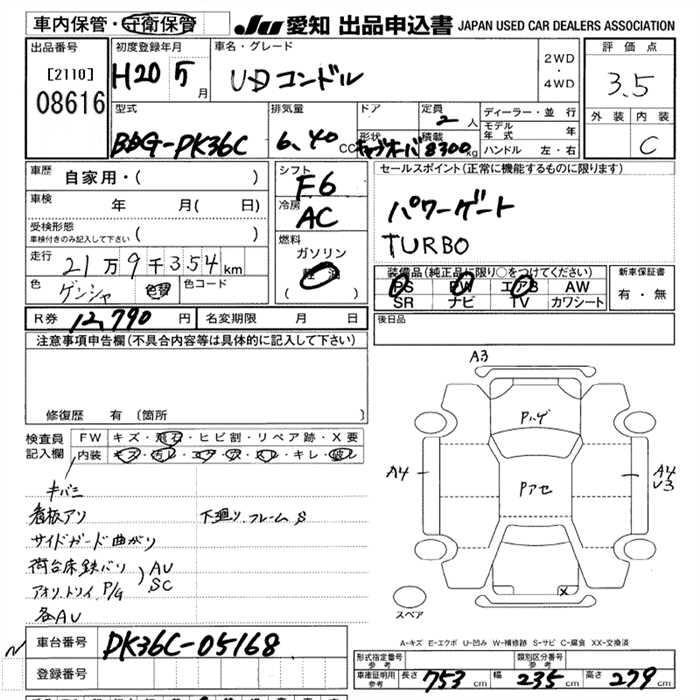 車内保管・守衛保管 JU 愛知 出品申込書 JAPAN USED CAR DEALERS ASSOCIATION
出品番号
[2110]
08616
初度登録年月
H20 5 月
車名・グレード
UDコンドル
2WD
・
4WD
評価点
3.5
外装 内装
C
型式
BDG-PK36C
排気量
6.40 CC
ドア
形状
キャブオーバ
定員
2 人
積載
8300 kg
ディーラー・並行
モデル年式 年
ハンドル 左・右
車歴 自家用・( )
車検 年 月( 日)
受検形態
車検付きのみ記入して下さい ( )
走行 21万9千354km
色 ゲンシャ 色替 色コード
シフト
F6
冷房
AC
燃料
ガソリン
軽油
( )
セールスポイント(正常に機能するものに限ります)
パワーゲート
TURBO
装備品(純正品に限り○をつけてください)
PS PW エアB AW
SR ナビ TV カワシート
新車保証書
有・無
R券 12,790 円 名変期限 月 日
後日品
注意事項申告欄(不具合内容等は具体的に記入して下さい)
修復歴 有(箇所
検査員記入欄
FW キズ・飛石・ヒビ割・リペア跡・X要
内装 キズ・汚レ・コゲ・穴・スレ・キレ・破レ
キバミ
看板アリ 下廻り、フレームS
サイドガード曲がり
荷台床鉄バリ
アオリ、トリイ、P/G ) AU SC
各AU
A3
Pハゲ
Pアセ
A4
A4
U3
X
スペア
A-キズ E-エクボ U-凹み W-補修跡 S-サビ C-腐食 XX-交換済
車台番号 PK36C-05168
登録番号
形式指定番号
参考
類別区分番号
参考
車庫証明用
参考
長さ 753 cm 幅 235 cm 高さ 279 cm